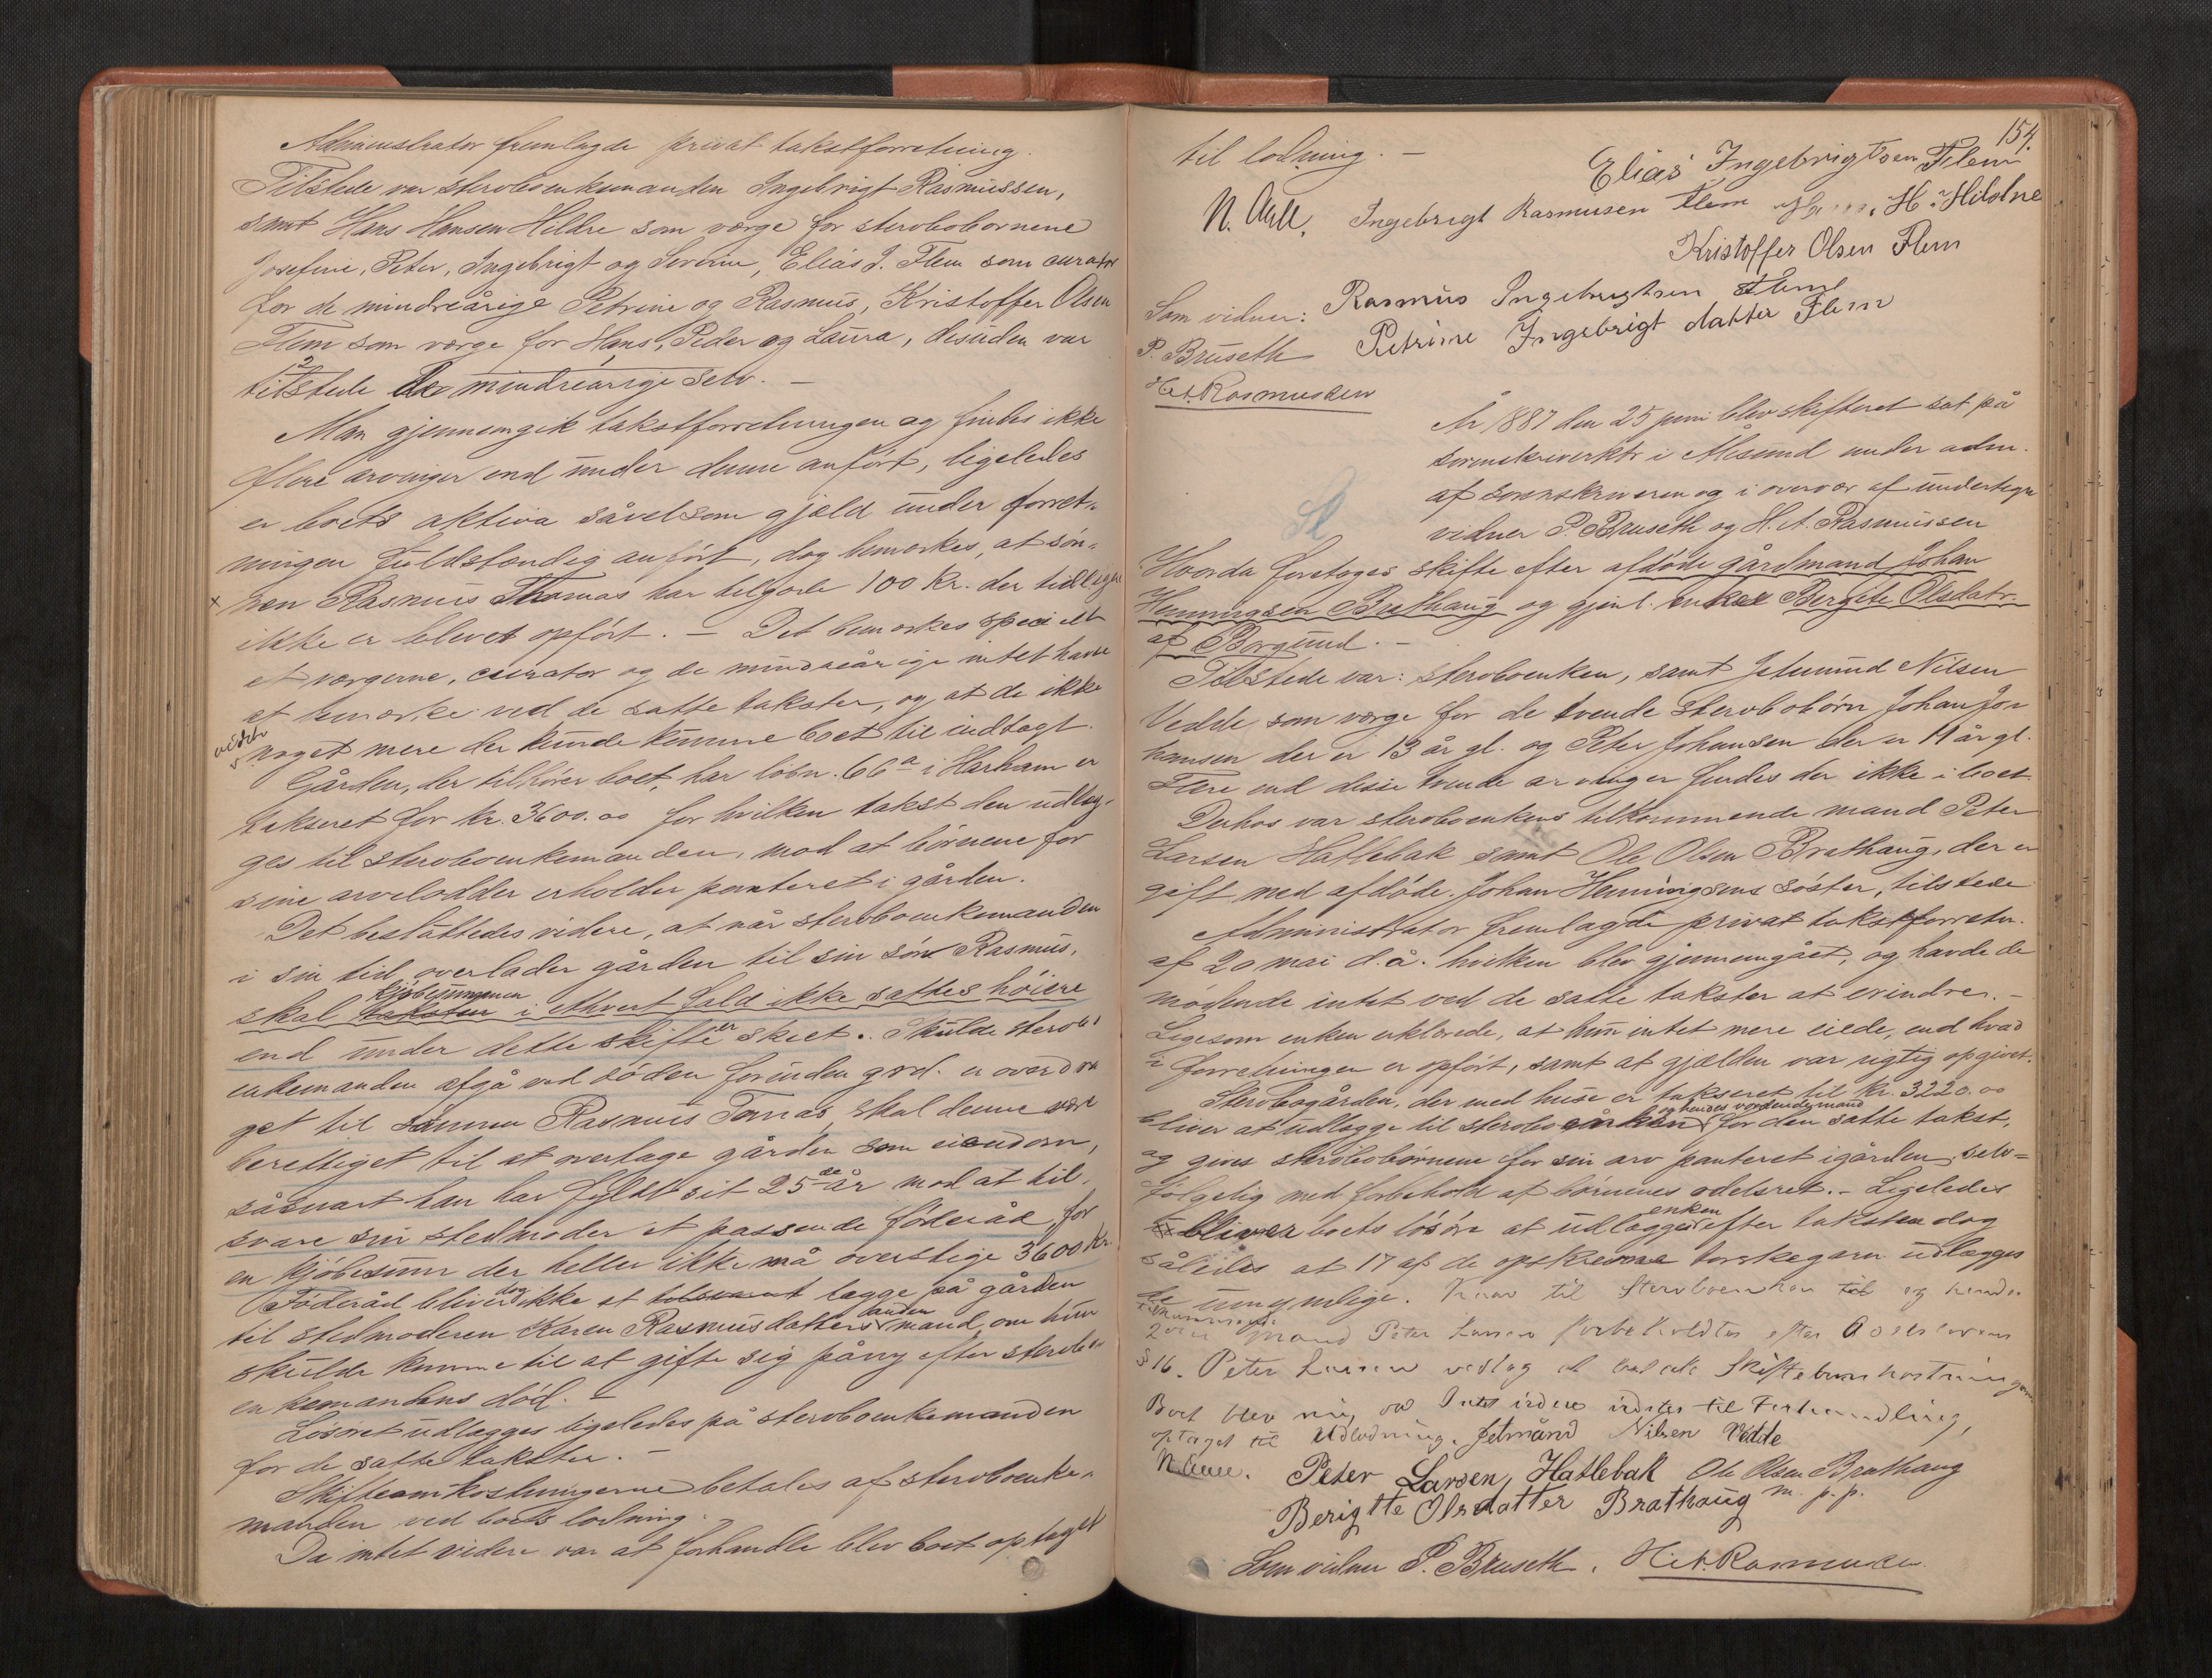 Administrator fremlagde privat takstforretning.
Tilstede var sterboenkemanden Ingebrigt Rasmussen,
samt Hans Hansen Hildre som værge for sterbobørnene
Josefine, Peter, Ingebrigt og Severine, Elias I. Flem som curator
for de mindreårige Petrine og Rasmus, Kristoffer Olsen
Flem som værge for Hans, Peder og Laura, desuden var
tilstede de 2 mindreårige selv. –
Man gjennemgik takstforretningen og findes ikke
flere arvinger end under denne anført, ligeledes
er boets aktiva såvelsom gjæld under forret-
ningen fuldstændig anført, dog bemærkes, at søn-
x nen Rasmus Thomas har tilgode 100 Kr. der tidligere
ikke er blevet opført. – Det bemærkes specielt
at værgerne, curator og de mindreårige intet havde
at bemærke ved de satte takster, og at de ikke
vidste noget mere der kunde komme boet til indtægt.
Gården, der tilhører boet, har løbn. 66a i Harham er
takseret for kr. 3600.00 for hvilken takst den udlæg-
ges til sterboenkemanden, mod at børnene for
sine arvelodder erholder panteret i gården.
Det besluttedes videre, at når sterboenkemanden
i sin tid overlader gården til sin søn Rasmus,
skal taksten kjøbesummen i ethvert fald ikke sættes høiere
end under dette skifte er skeet. Skulde sterbo-
enkemanden afgå ved døden forinden grd. er overdra
get til sønnen Rasmus Tomas, skal denne være
berettiget til at overtage gården som eiendom,
såsnart han har fyldt sit 25de år mod at til-
svare sin stedmoder et passende føderåd, for
en kjøbesum der heller ikke må overstige 3600 Kr.
Føderåd bliver dog ikke at lægge på gården
til stedmoderen Karen Rasmusdatters anden mand, om hun
skulde komme til at gifte sig påny efter sterbo-
enkemandens død. –
Løsøret udlægges ligeledes på sterboenkemanden
for de satte takster. –
Skifteomkostningerne betales af sterboenke-
manden ved boets lodning.
Da intet videre var at forhandle blev boet optaget
154.
til lodning. –
Elias Ingebrigtsen Flem
N. Aall. Ingebrigt Rasmusen Flem H. Hildre
Kristoffer Olsen Flem
Som vidner: Rasmus Ingebrigtsen Flem
P. Bruseth Petrine Ingebrigt datter Flem
H. A. Rasmussen
År 1887 den 25 juni blev skifteret sat på
sorenskriverktr i Ålesund under adm.
af sorenskriveren og i overvær af undertegn
vidner P. Bruseth og H. A. Rasmussen
Hvorda foretoges skifte efter afdøde gårdmand Johan
Henningsen Brathaug og gjenl. enke Bergite Olsdatr
af Borgund. –
Tilstede var: sterboenken, samt Jetmund Nilsen
Vedde som værge for de tvende sterbobørn Johan Jo-
hansen der er 13 år gl. og Peter Johansen der er 11 år gl.
Flere end disse tvende arvinger findes der ikke i boet
Derhos var sterboenkens tilkommende mand Peter
Larsen Hatlebak samt Ole Olsen Brathaug, der er
gift med afdøde Johan Henningsens søster, tilstede
Administrator fremlagde privat takstforretn.
af 20 mai d.å. hvilken blev gjennemgået, og havde de
mødende intet ved de satte takster at erindre. –
Ligesom enken erklærede, at hun intet mere eiede, end hvad
i forretningen er opført, samt at gjælden var rigtig opgivet.
Sterbogården, der med huse er takseret til kr. 3220.00
bliver at udlægge til sterboenken og hendes vordende mand for den satte takst,
og gives sterbobørnene for sin arv panteret i gården, selv-
følgelig med forbehold af børnenes odelsret. – Ligeledes
bliver boets løsøre at udlægges enken efter taksten dog
således at 17 af de opskrevne torskegarn udlægges
de umyndige. til Sterboenken og hendes
tilkommende
2den Mand Peter Larsen forbeholdtes efter Odelsloven
§ 16. Peter Larsen vedtog at betale Skifteomkostningerne
Boet blev nu, da Intet videre til Forhandling,
optaget til Udlodning. Jetmånd Nilsen Vedde
N. Aall. Peter Larsen Hatlebak Ole Olsen Brathaug
Berigtte Olsdatter Brathaug m. p. p.
Som vidner P. Bruseth. H. A. Rasmussen